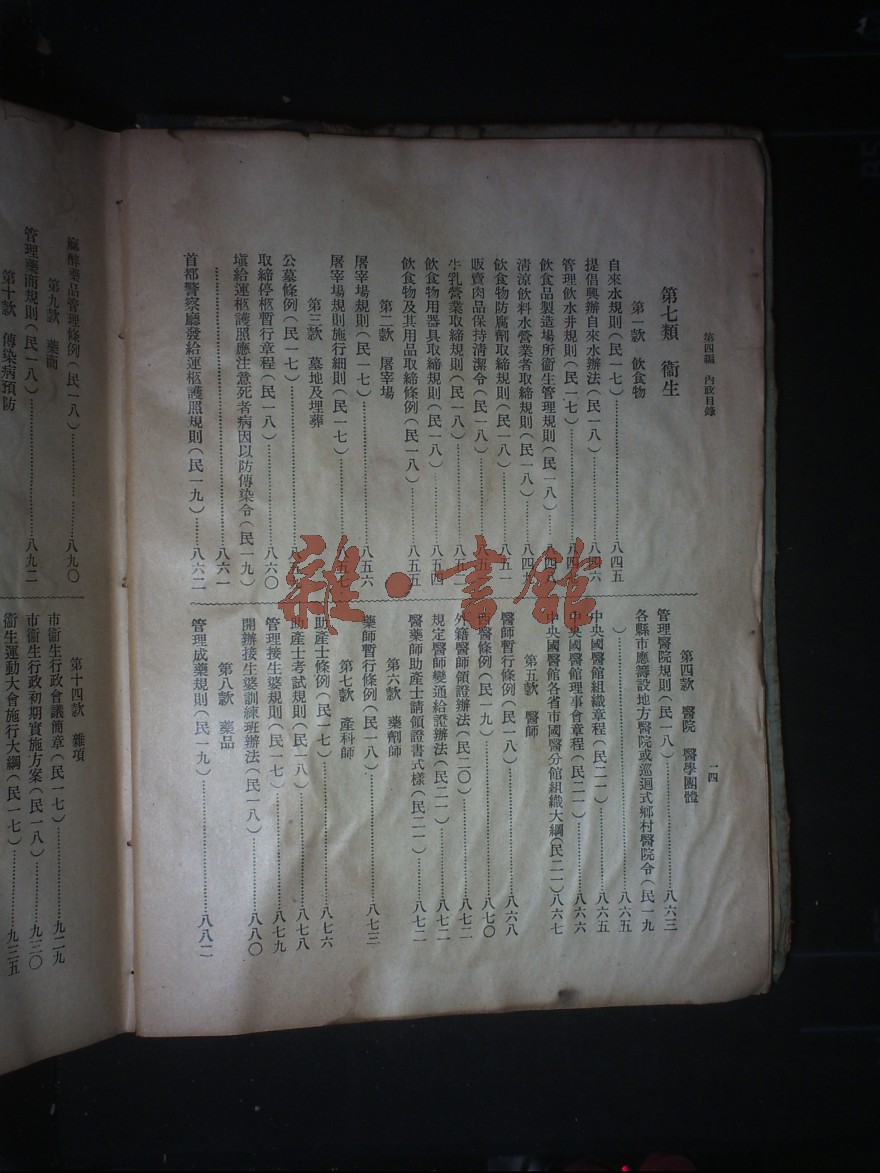 第四編　內政目錄
一四
第七類　衞生
第一款　飲食物
自來水規則（民一七）…………八四五
提倡興辦自來水辦法（民一八）…………八四六
管理飲水井規則（民一七）…………八四
飲食品製造場所衞生管理規則（民一八）…………八四八
清涼飲料水營業者取締規則（民一八）…………八四九
飲食物防腐劑取締規則（民一八）…………八五一
販賣肉品保持清潔令（民一八）…………八五
牛乳營業取締規則（民一八）…………八五二
飲食物用器具取締規則（民一八）…………八五四
飲食物及其用品取締條例（民一八）…………八五五
第二款　屠宰場
屠宰場規則（民一七）…………八五六
屠宰場規則施行細則（民一七）…………八五七
第三款　墓地及埋葬
公墓條例（民一七）…………八五九
取締停柩暫行章程（民一八）…………八六〇
塡給運柩護照應注意死者病因以防傳染令（民一九）
…………八六一
首都警察廳發給運柩護照規則（民一九）…………八六二
第四款　醫院　醫學團體
管理醫院規則（民一八）…………八六三
各縣市應籌設地方醫院或巡迴式鄉村醫院令（民一九
）…………八六五
中央國醫館組織章程（民二一）…………八六五
中央國醫館理事會章程（民二一）…………八六六
中央國醫館各省市國醫分館組織大綱（民二一）八六七
第五款　醫師
醫師暫行條例（民一八）…………八六八
西醫條例（民一九）…………八七〇
外籍醫師領證辦法（民二〇）…………八七二
規定醫師變通給證辦法（民二一）…………八七二
醫藥師助產士請領證書式樣（民二一）…………八七二
第六款　藥劑師
藥師暫行條例（民一八）…………八七三
第七款　產科師
助產士條例（民一七）…………八七六
助產士考試規則（民一八）…………八七八
管理接生婆規則（民一七）…………八七九
開辦接生婆訓練班辦法（民一八）…………八八〇
第八款　藥品
管理成藥規則（民一九）…………八八二
麻醉藥品管理條例（民一八）…………八九〇
第九款　藥商
管理藥商規則（民一八）…………八九二
第十款　傳染病預防
第十四款　雜項
市衞生行政會議簡章（民一七）…………九二九
市衞生行政初期實施方案（民一八）…………九三〇
衞生運動大會施行大綱（民一七）…………九三五
雜·書館